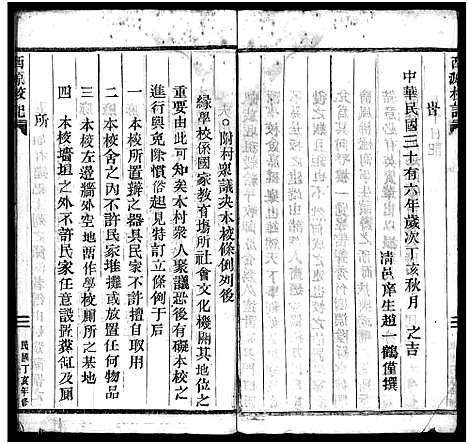 西源校記
昔
中華民國三十有六年歲次丁亥秋月 之吉
清邑庠生趙一鶴僅撰
附村衆議决本校條例列後
緣學校係國家教育塲所社會文化機關其地位之
重要由此可知矣本村衆人聚議恐後有碍本校之
進行與免除慣俗起見特訂立條例于后
一 本校所置辦之器具民家不許擅自取用
二 本校舍之內不許民家堆攤或放置任何物品
三 本校左邊牆外空地畱作學校厠所之基地
四 本校墻垣之外不許民家任意設置糞缸及厠
所
西源校記
民國丁亥年修